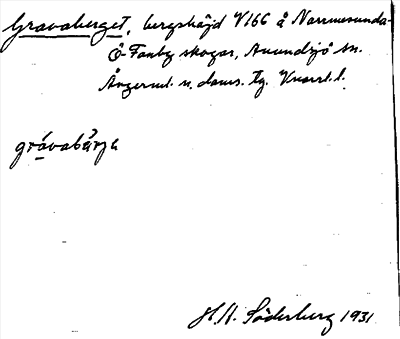 Gravaberget, bergshöjd V166 å Norrmesunda-
Ö Fanby skogar, Anundsjö sn.
Ångerml. n. doms. tg. Väst. l.
grávabǎrjɛ
H. H. Söderberg 1931